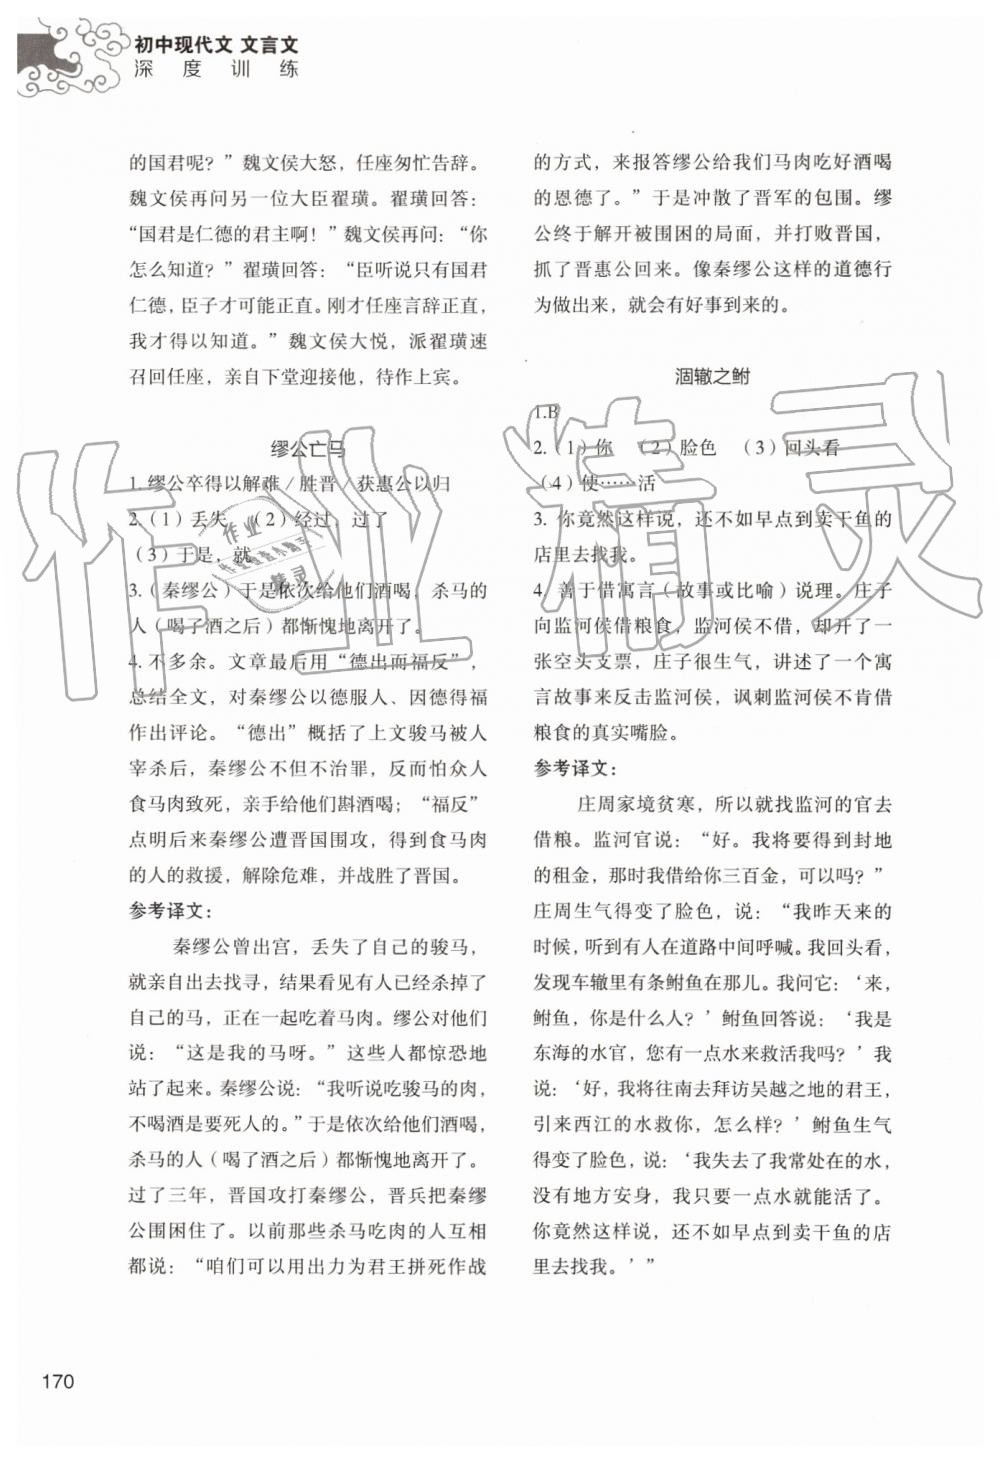 初中现代文 文言文
深度训练
的国君呢？”魏文侯大怒，任座匆忙告辞。
魏文侯再问另一位大臣翟璜。翟璜回答：
“国君是仁德的君主啊！”魏文侯再问：“你
怎么知道？”翟璜回答：“臣听说只有国君
仁德，臣子才可能正直。刚才任座言辞正直，
我才得以知道。”魏文侯大悦，派翟璜速
召回任座，亲自下堂迎接他，待作上宾。
缪公亡马
1. 缪公卒得以解难/胜晋/获惠公以归
2.（1）丢失 （2）经过，过了
（3）于是，就
3.（秦缪公）于是依次给他们酒喝，杀马的
人（喝了酒之后）都惭愧地离开了。
4. 不多余。文章最后用“德出而福反”，
总结全文，对秦缪公以德服人、因德得福
作出评论。“德出”概括了上文骏马被人
宰杀后，秦缪公不但不治罪，反而怕众人
食马肉致死，亲手给他们斟酒喝；“福反”
点明后来秦缪公遭晋国围攻，得到食马肉
的人的救援，解除危难，并战胜了晋国。
参考译文：
秦缪公曾出宫，丢失了自己的骏马，
就亲自出去找寻，结果看见有人已经杀掉了
自己的马，正在一起吃着马肉。缪公对他们
说：“这是我的马呀。”这些人都惊恐地
站了起来。秦缪公说：“我听说吃骏马的肉，
不喝酒是要死人的。”于是依次给他们酒喝，
杀马的人（喝了酒之后）都惭愧地离开了。
过了三年，晋国攻打秦缪公，晋兵把秦缪
公围困住了。以前那些杀马吃肉的人互相
都说：“咱们可以用出力为君王拼死作战
的方式，来报答缪公给我们马肉吃好酒喝
的恩德了。”于是冲散了晋军的包围。缪
公终于解开被围困的局面，并打败晋国，
抓了晋惠公回来。像秦缪公这样的道德行
为做出来，就会有好事到来的。
涸辙之鲋
1.B
2.（1）你 （2）脸色 （3）回头看
（4）使……活
3. 你竟然这样说，还不如早点到卖干鱼的
店里去找我。
4. 善于借寓言（故事或比喻）说理。庄子
向监河侯借粮食，监河侯不借，却开了一
张空头支票，庄子很生气，讲述了一个寓
言故事来反击监河侯，讽刺监河侯不肯借
粮食的真实嘴脸。
参考译文：
庄周家境贫寒，所以就找监河的官去
借粮。监河官说：“好。我将要得到封地
的租金，那时我借给你三百金，可以吗？”
庄周生气得变了脸色，说：“我昨天来的
时候，听到有人在道路中间呼喊。我回头看，
发现车辙里有条鲋鱼在那儿。我问它：‘来，
鲋鱼，你是什么人？’鲋鱼回答说：‘我是
东海的水官，您有一点水来救活我吗？’我
说：‘好，我将往南去拜访吴越之地的君王，
引来西江的水救你，怎么样？’鲋鱼生气
得变了脸色，说：‘我失去了我常处在的水，
没有地方安身，我只要一点水就能活了。
你竟然这样说，还不如早点到卖干鱼的店
里去找我。’”
170
作业精灵